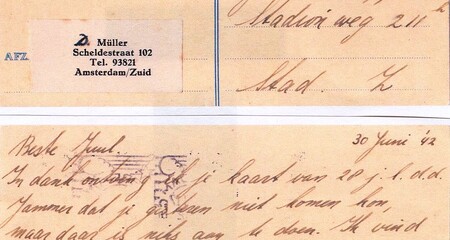 AFZ.
D. Müller
Scheldestraat 102
Tel. 93821
Amsterdam/Zuid
Stadionweg 211 h
Stad. Z
30 Juni '42
Beste Juul.
In dank ontving ik je kaart van 28 j.l. d.d.
Jammer dat je gisteren niet komen kon,
maar daar is niks aan te doen. Ik vind